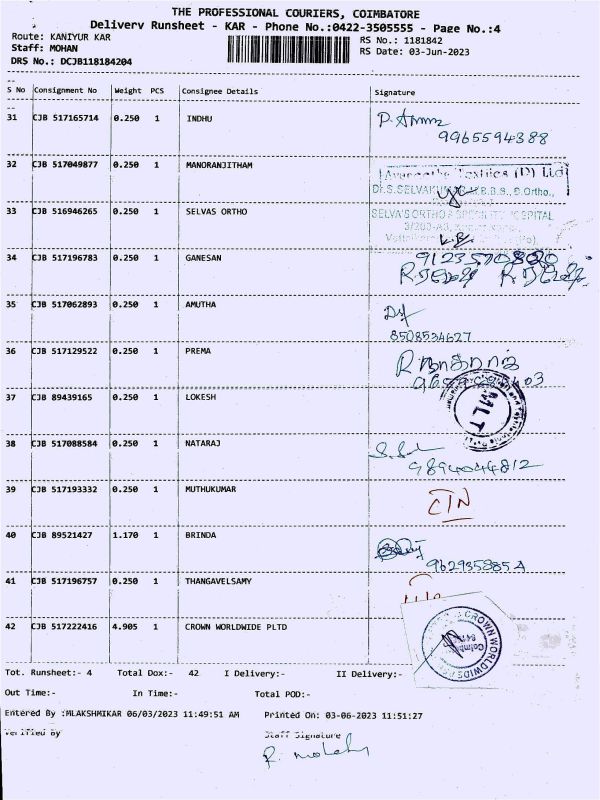 THE PROFESSIONAL COURIERS, COIMBATORE
Delivery Runsheet - KAR - Phone No.:0422-3505555 - Page No.:4
Route: KANIYUR KAR
RS No.: 1181842
Staff: MOHAN
RS Date: 03-Jun-2023
DRS No.: DCJB118184204
S No Consignment No Weight PCS Consignee Details Signature
31 CJB 517165714 0.250 1 INDHU
9965594388
32 CJB 517049877 0.250 1 MANORANJITHAM
Textiles (P) Ltd
33 CJB 516946265 0.250 1 SELVAS ORTHO
Dr.S.SELVAKUMAR M.B.B.S., D.Ortho.,
SELVA'S ORTHO & HOSPITAL
34 CJB 517196783 0.250 1 GANESAN
35 CJB 517062893 0.250 1 AMUTHA
8508534627
36 CJB 517129522 0.250 1 PREMA
37 CJB 89439165 0.250 1 LOKESH
MLT
38 CJB 517088584 0.250 1 NATARAJ
9894044812
39 CJB 517193332 0.250 1 MUTHUKUMAR
CTN
40 CJB 89521427 1.170 1 BRINDA
41 CJB 517196757 0.250 1 THANGAVELSAMY
42 CJB 517222416 4.905 1 CROWN WORLDWIDE PLTD
CROWN WORLDWIDE
Tot. Runsheet:- 4 Total Dox:- 42 I Delivery:- II Delivery:-
Out Time:- In Time:- Total POD:-
Entered By :MLAKSHMIKAR 06/03/2023 11:49:51 AM Printed On: 03-06-2023 11:51:27
Verified By Staff Signature